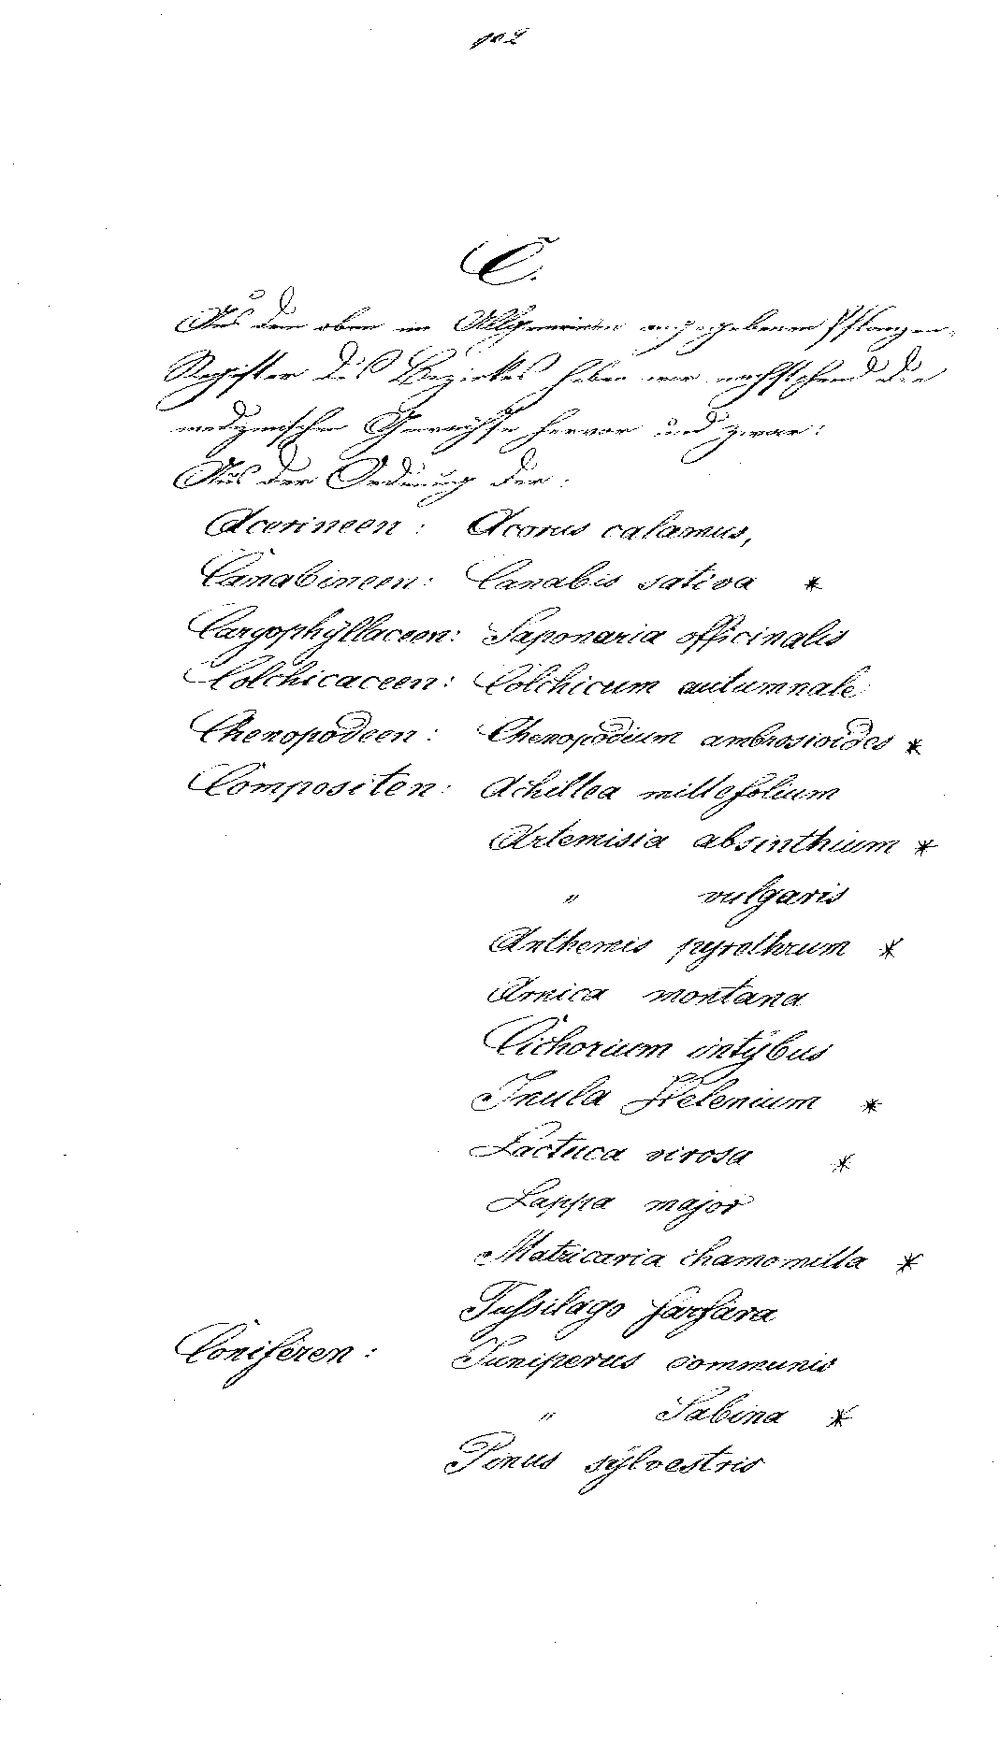 902
C.
Aus dem oben im Allgemeinen angegebenen Pflanzen-
Register des Bezirkes heben wir nachstehend die
medizinischen Gewächse hervor und zwar:
Aus der Ordnung der:
Acerineen: Acorus calamus,
Canabineen: Canabis sativa *
Cargophÿllaceen: Saponaria officinalis
Colchicaceen: Colchicum autumnale
Chenopodeen: Chenopodium ambrosioides *
Compositen: Achillea millefolium
Artemisia absinthium *
" vulgaris
Anthemis pyrethrum *
Arnica montana
Cichorium intÿbus
Inula Helenium *
Lactuca virosa *
Lappa major
Matricaria chamomilla *
Tussilago farfara
Coniferen: Juniperus communis
" Sabina *
Pinus sÿlvestris